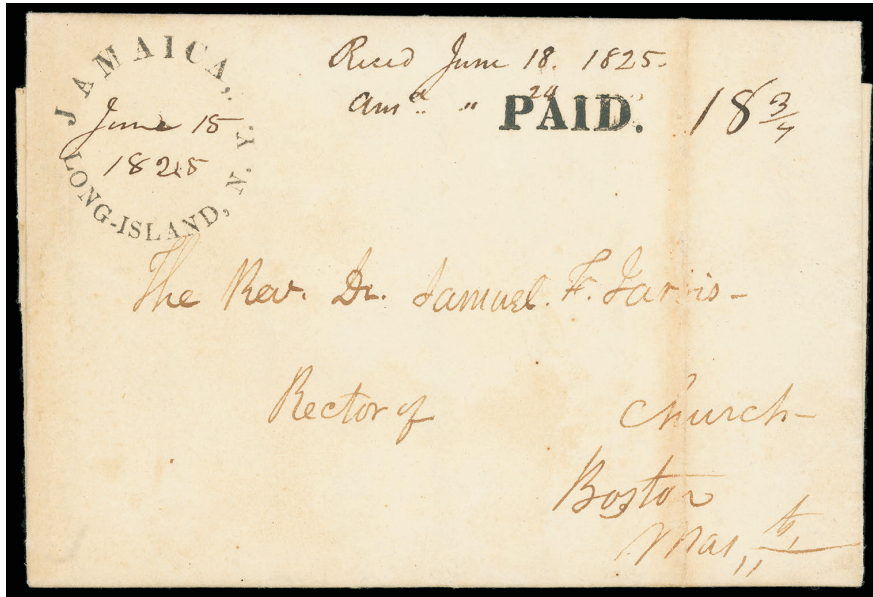 JAMAICA,
LONG-ISLAND, N. Y.
June 15
1825
Reced June 18. 1825.
Ansd. " 24
PAID. 18 3/4
The Rev. Dr. Samuel. F. Jarvis-
Rector of Church-
Boston
Mass